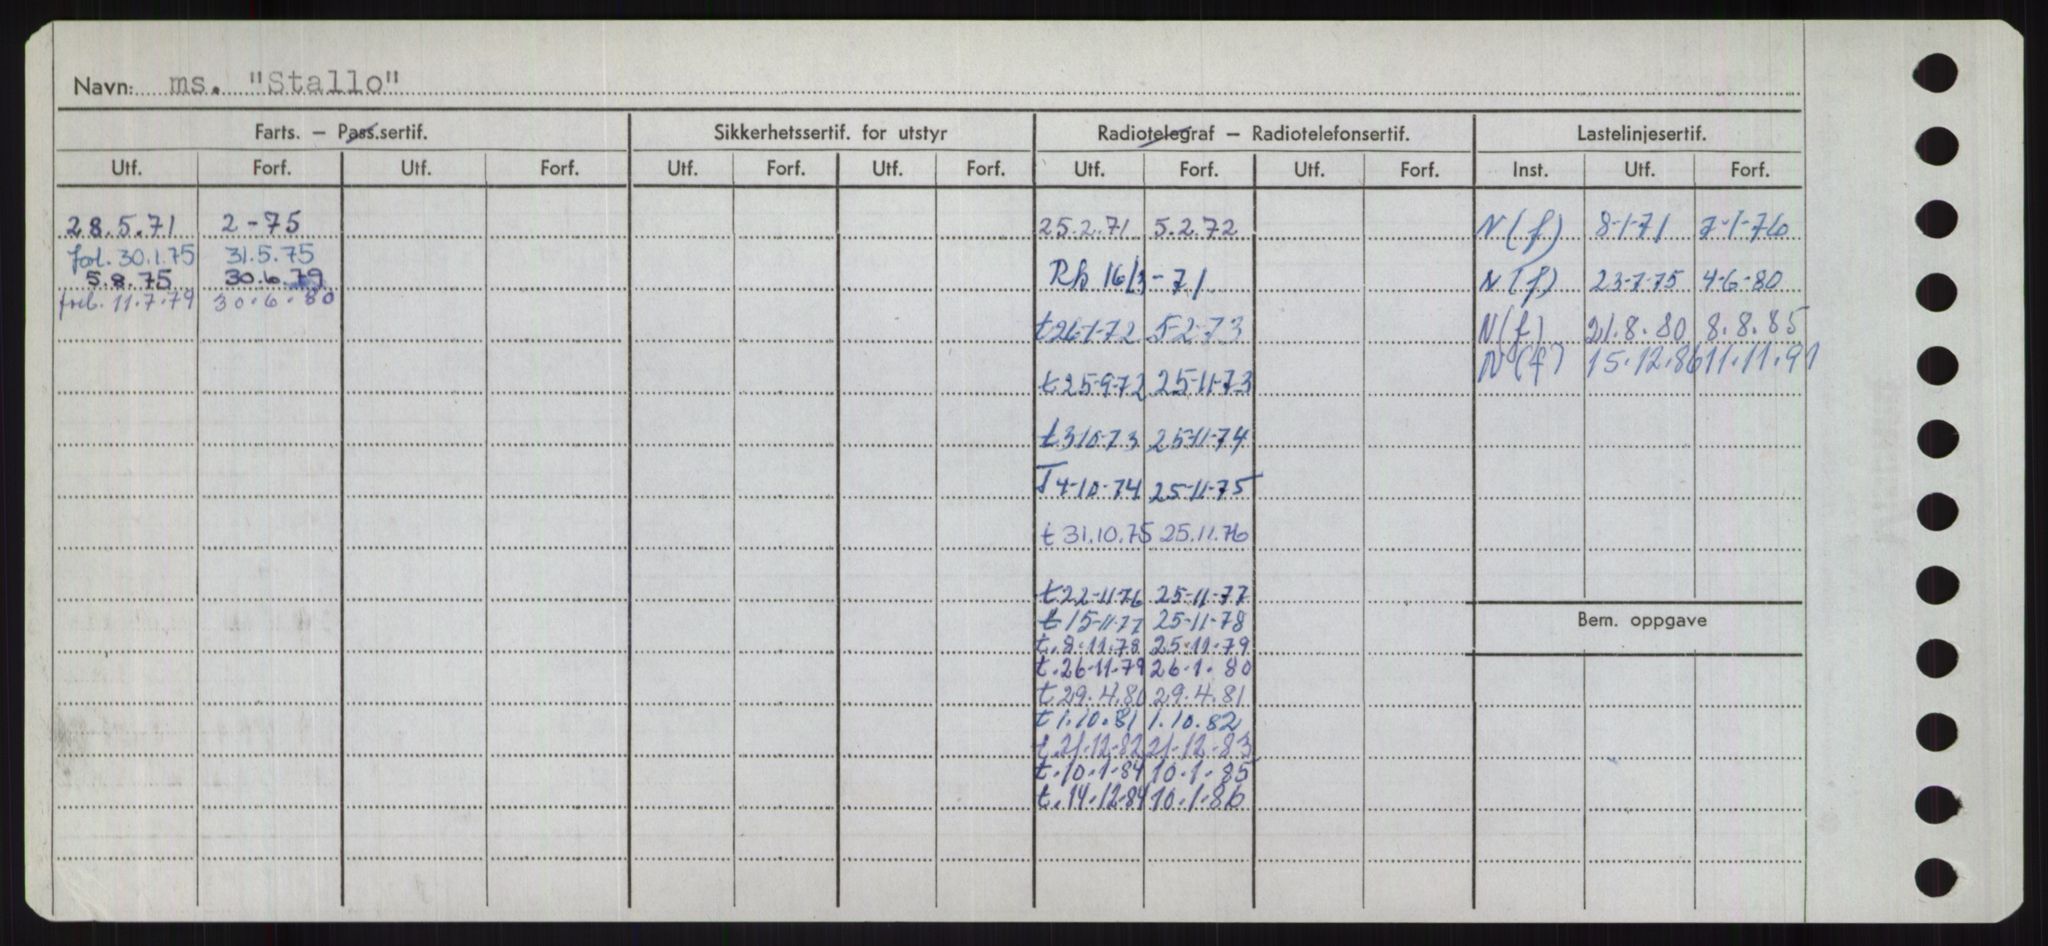 Navn: ms. "Stallo"
Farts. – Pass.sertif. Sikkerhetssertif. for utstyr Radiotelegraf – Radiotelefonsertif. Lastelinjesertif.
Utf. Forf. Utf. Forf. Utf. Forf. Utf. Forf. Utf. Forf. Utf. Forf. Inst. Utf. Forf.
28.5.71 2-75 25.2.71 5.2.72 N(f) 8-1-71 7-1-76
forl. 30.1.75 31.5.75
5.8.75 30.6.79 Rh 16/3-71 N(f) 23-7-75 4-6-80
forl. 11.7.79 30.6.80
t 26-1-72 5-2-73 N(f) 21.8.80 8.8.85
N(f) 15.12.86 11.11.91
t 25-9-72 25-11-73
t 3-10-73 25-11-74
T 4-10-74 25-11-75
t 31.10.75 25.11.76
t 22-11-76 25-11-77
t 15-11-77 25-11-78
Bem. oppgave
t. 8.11.78 25.11.79
t. 26.11.79 26.1.80
t 29.4.80 29.4.81
t 1.10.81 1.10.82
t. 21.12.82 21.12.83
t. 10.1.84 10.1.85
t. 14.12.84 10.1.86